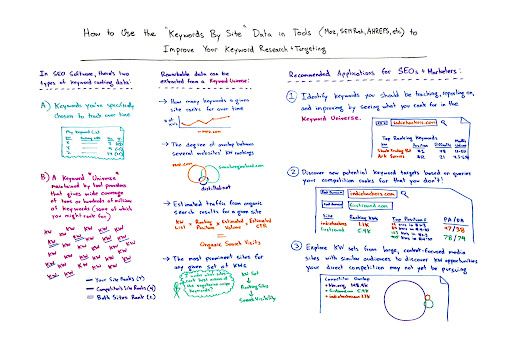 How to Use the "Keywords By Site" Data in Tools (Moz, SEMRush, AHREFS, etc) to
Improve Your Keyword Research + Targeting
In SEO Software, there's two
types of keyword ranking data:
A) Keywords you've specifically
chosen to track over time
My Keyword List
B) A Keyword "Universe"
maintained by tool providers
that gives wide coverage
of tens or hundreds of millions
of keywords (some of which
you might rank for)
KW KW KW KW KW
KW KW KW KW KW
KW KW KW KW KW
KW KW KW KW KW
Your Site Ranks (Y)
Competitor's Site Ranks (N)
Both Sites Rank (C)
Remarkable data can be
extracted from a Keyword Universe:
→ How many keywords a given
site ranks for over time
→ The degree of overlap between
several websites' KW rankings
→ Estimated traffic from organic
search results for a given site
KW List × Ranking Position × Estimated Volume × Estimated CTR
= Organic Search Visits
→ The most prominent sites for
any given set of KWs
KW Set
↓
Ranking Sites
↓
Search Visibility
Recommended Applications for SEOs + Marketers:
① Identify keywords you should be tracking, reporting on,
and improving by seeing what you rank for in the
Keyword Universe.
indiehackers.com
Top Ranking Keywords
KW Position Difficulty
② Discover new potential keyword targets based on queries
your competition ranks for that you don't!
indiehackers.com
firstround.com
Site Ranking KWs Top Positions PA/DA
indiehackers 1.1K 47/38
firstround 5.9K 78/74
③ Explore KW sets from large, content-focused media
sites with similar audiences to discover KW opportunities
your direct competition may not yet be pursuing
Competitor Overlap